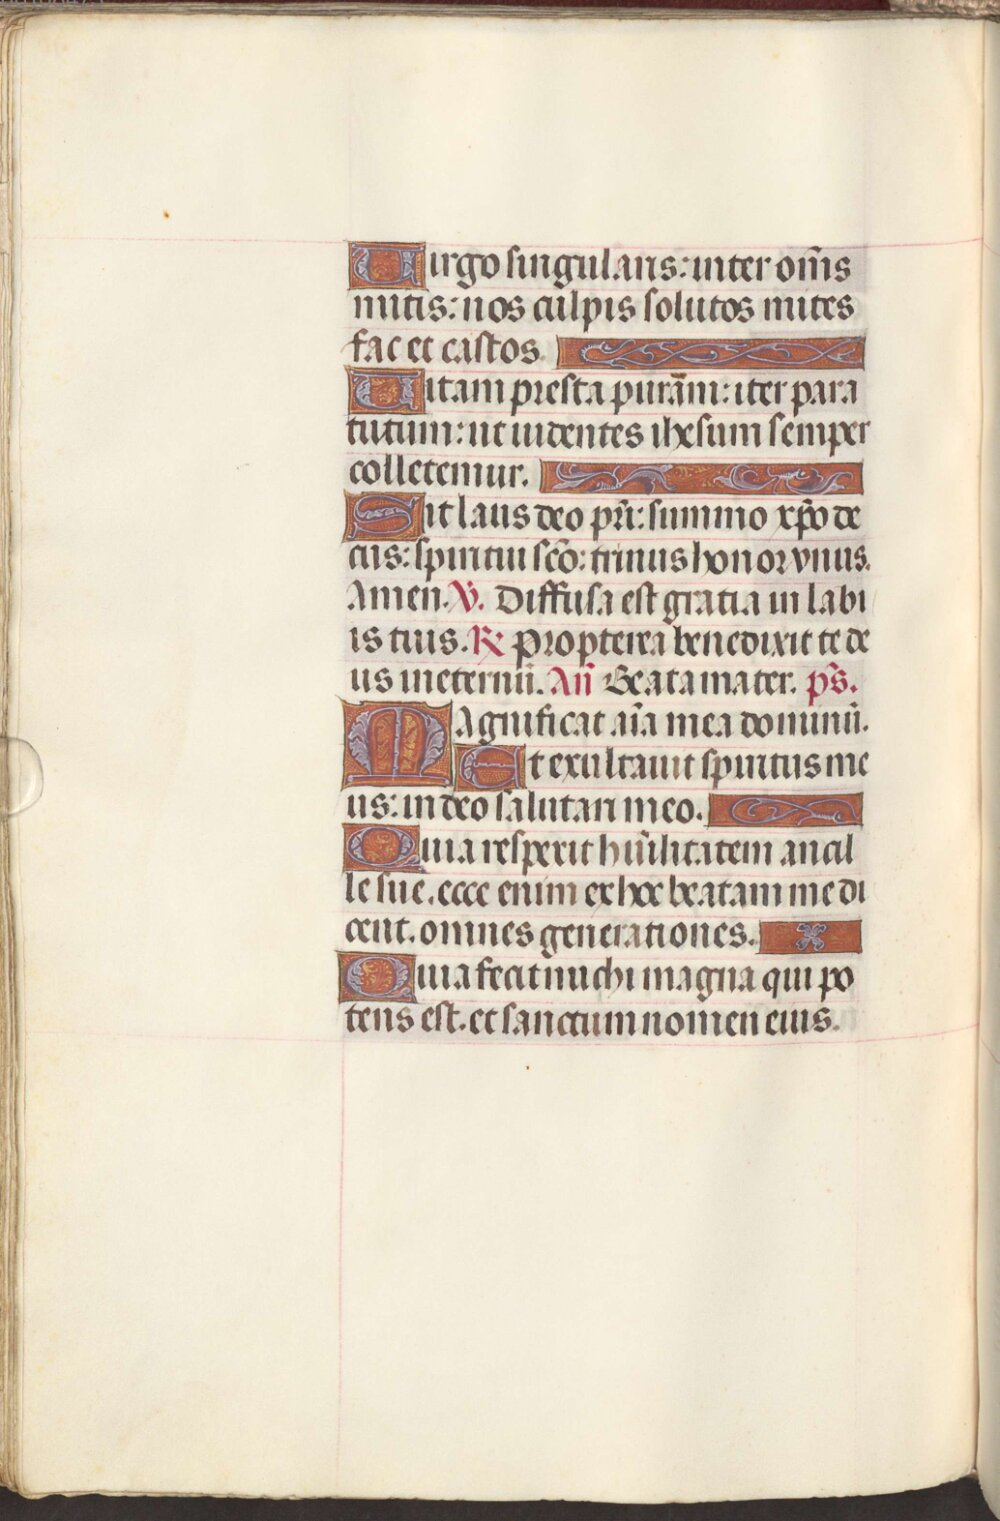 Uirgo singularis: inter om̅s
mitis: nos culpis solutos mites
fac et castos.
Uitam presta purām: iter para
tutum: ut uidentes ihesum semper
colletemur.
Sit laus deo pr̄i: summo xp̄o de
cus: spiritui sc̄o: trinus honor vnus.
Amen. V̇. Diffusa est gratia in labi
is tuis. R̷ Propterea benedixit te de
us ineternū. An̄ Beata mater. ps̄.
Magnificat aīa mea dominū.
Et exultauit spiritus me
us: in deo salutari meo.
Quia respexit hūilitatem ancil
le sue. ecce enim ex hoc beatam me di
cent. omnes generationes.
Quia fecit michi magna qui po
tens est. et sanctum nomen eius.